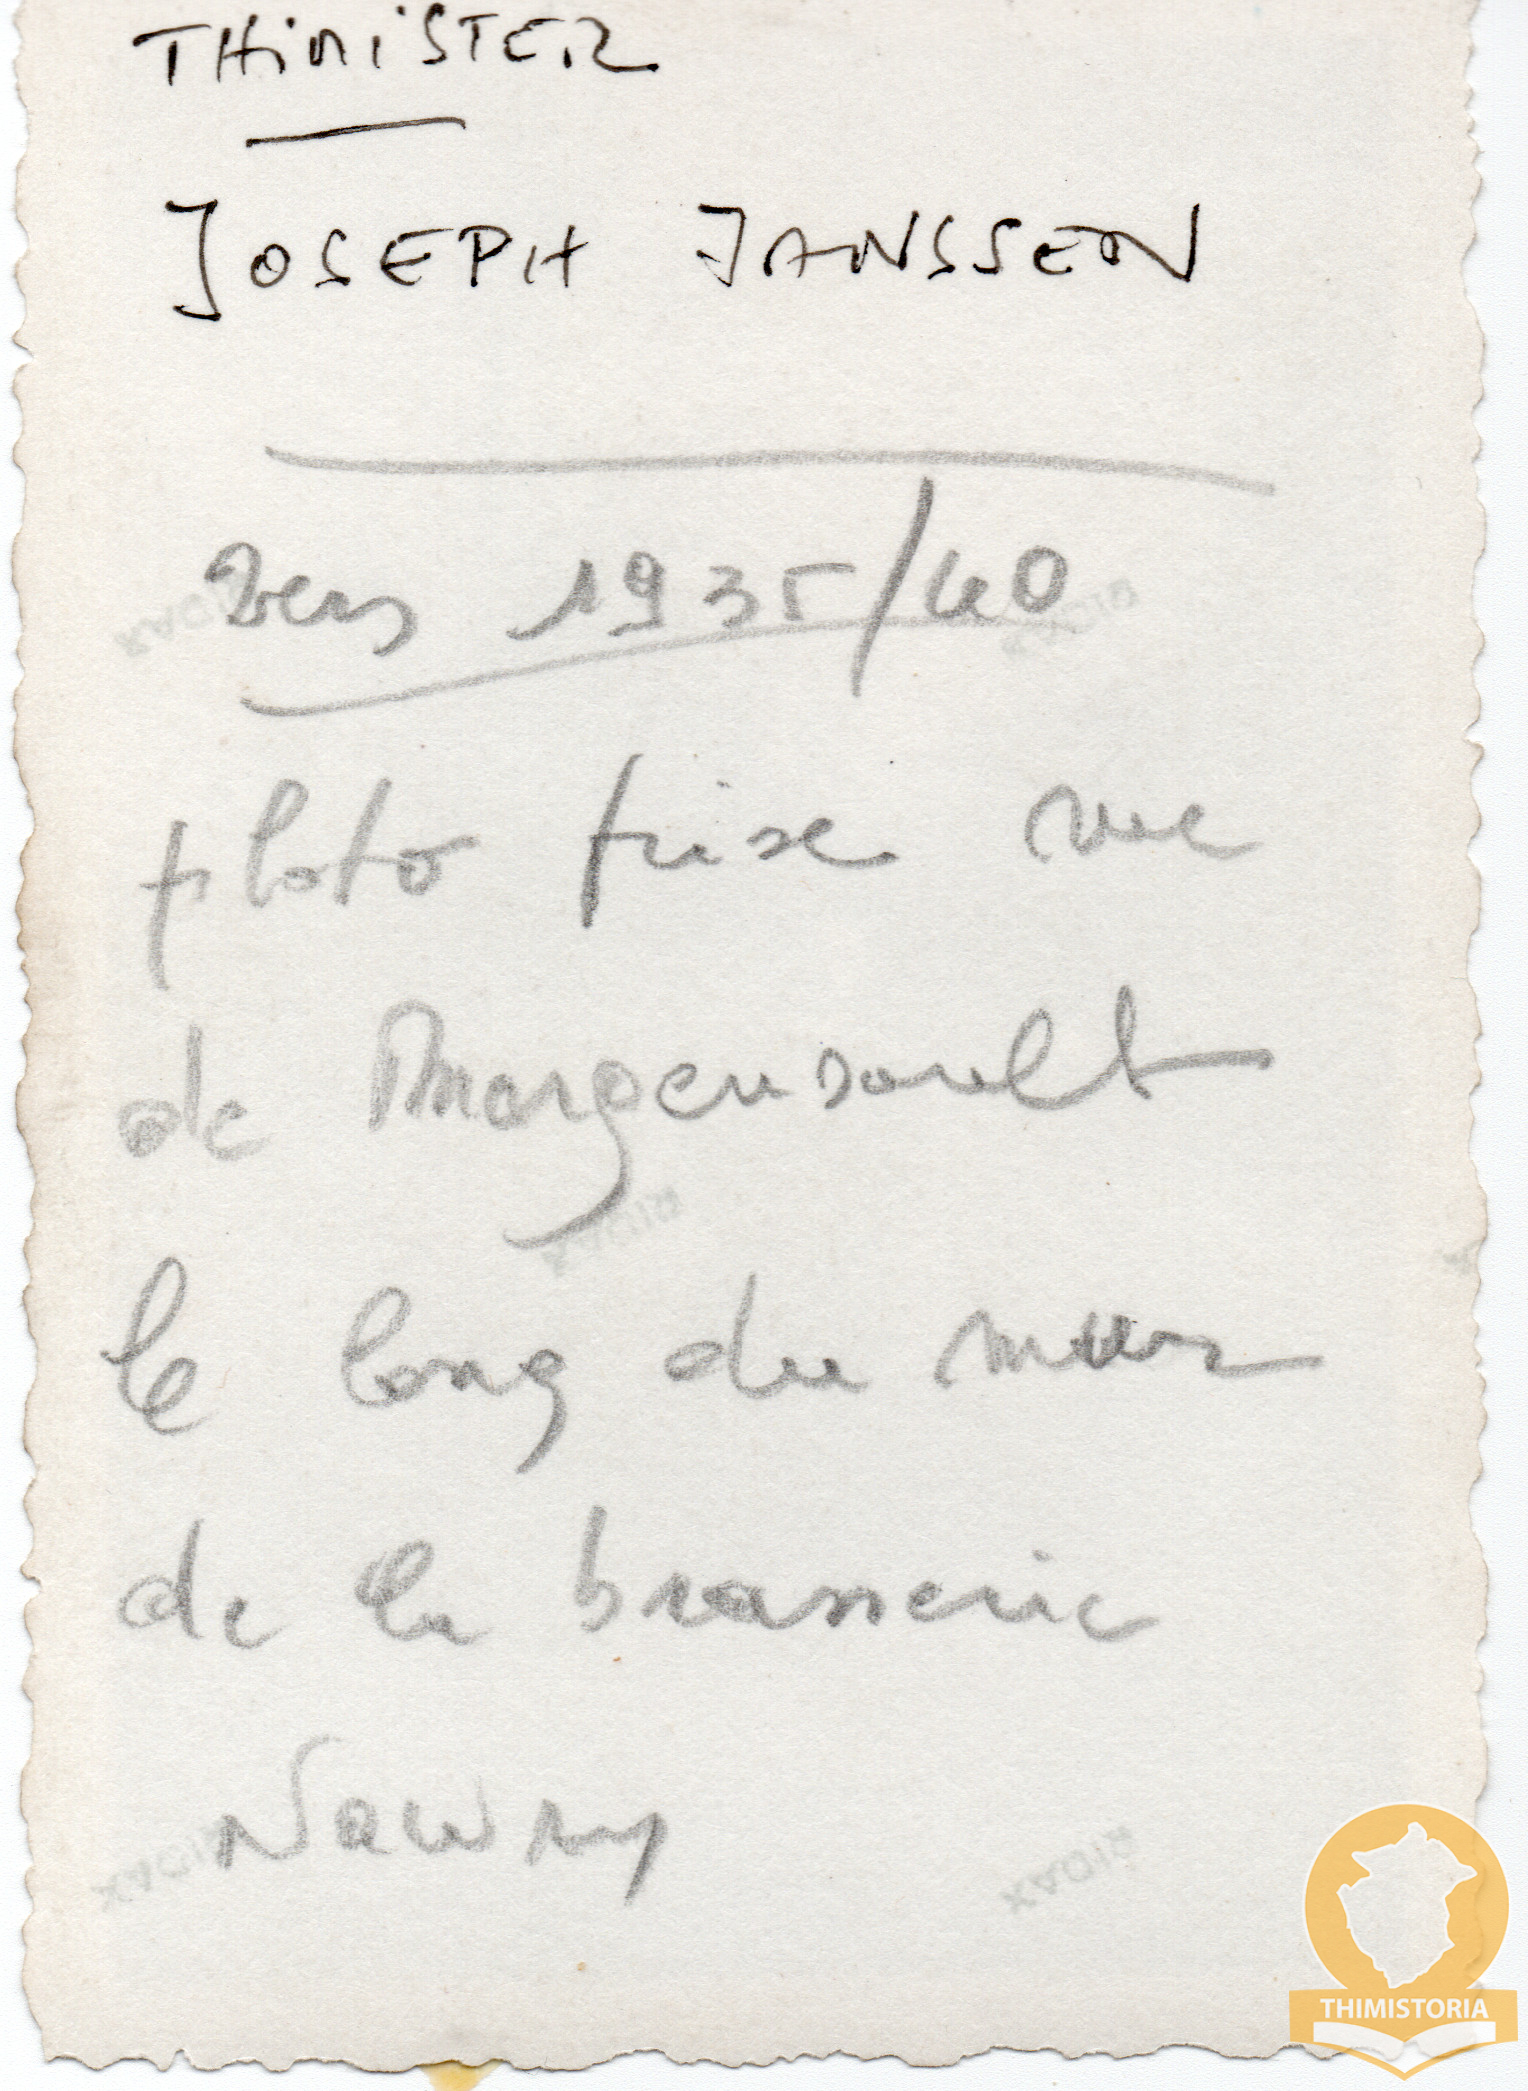 THIMISTER
JOSEPH JANSSEN
Vers 1935/40
photo prise rue
de Margensault
le long du mur
de la brasserie
Nawry
RIDAX
RIDAX
RIDAX
RIDAX
RIDAX
THIMISTORIA